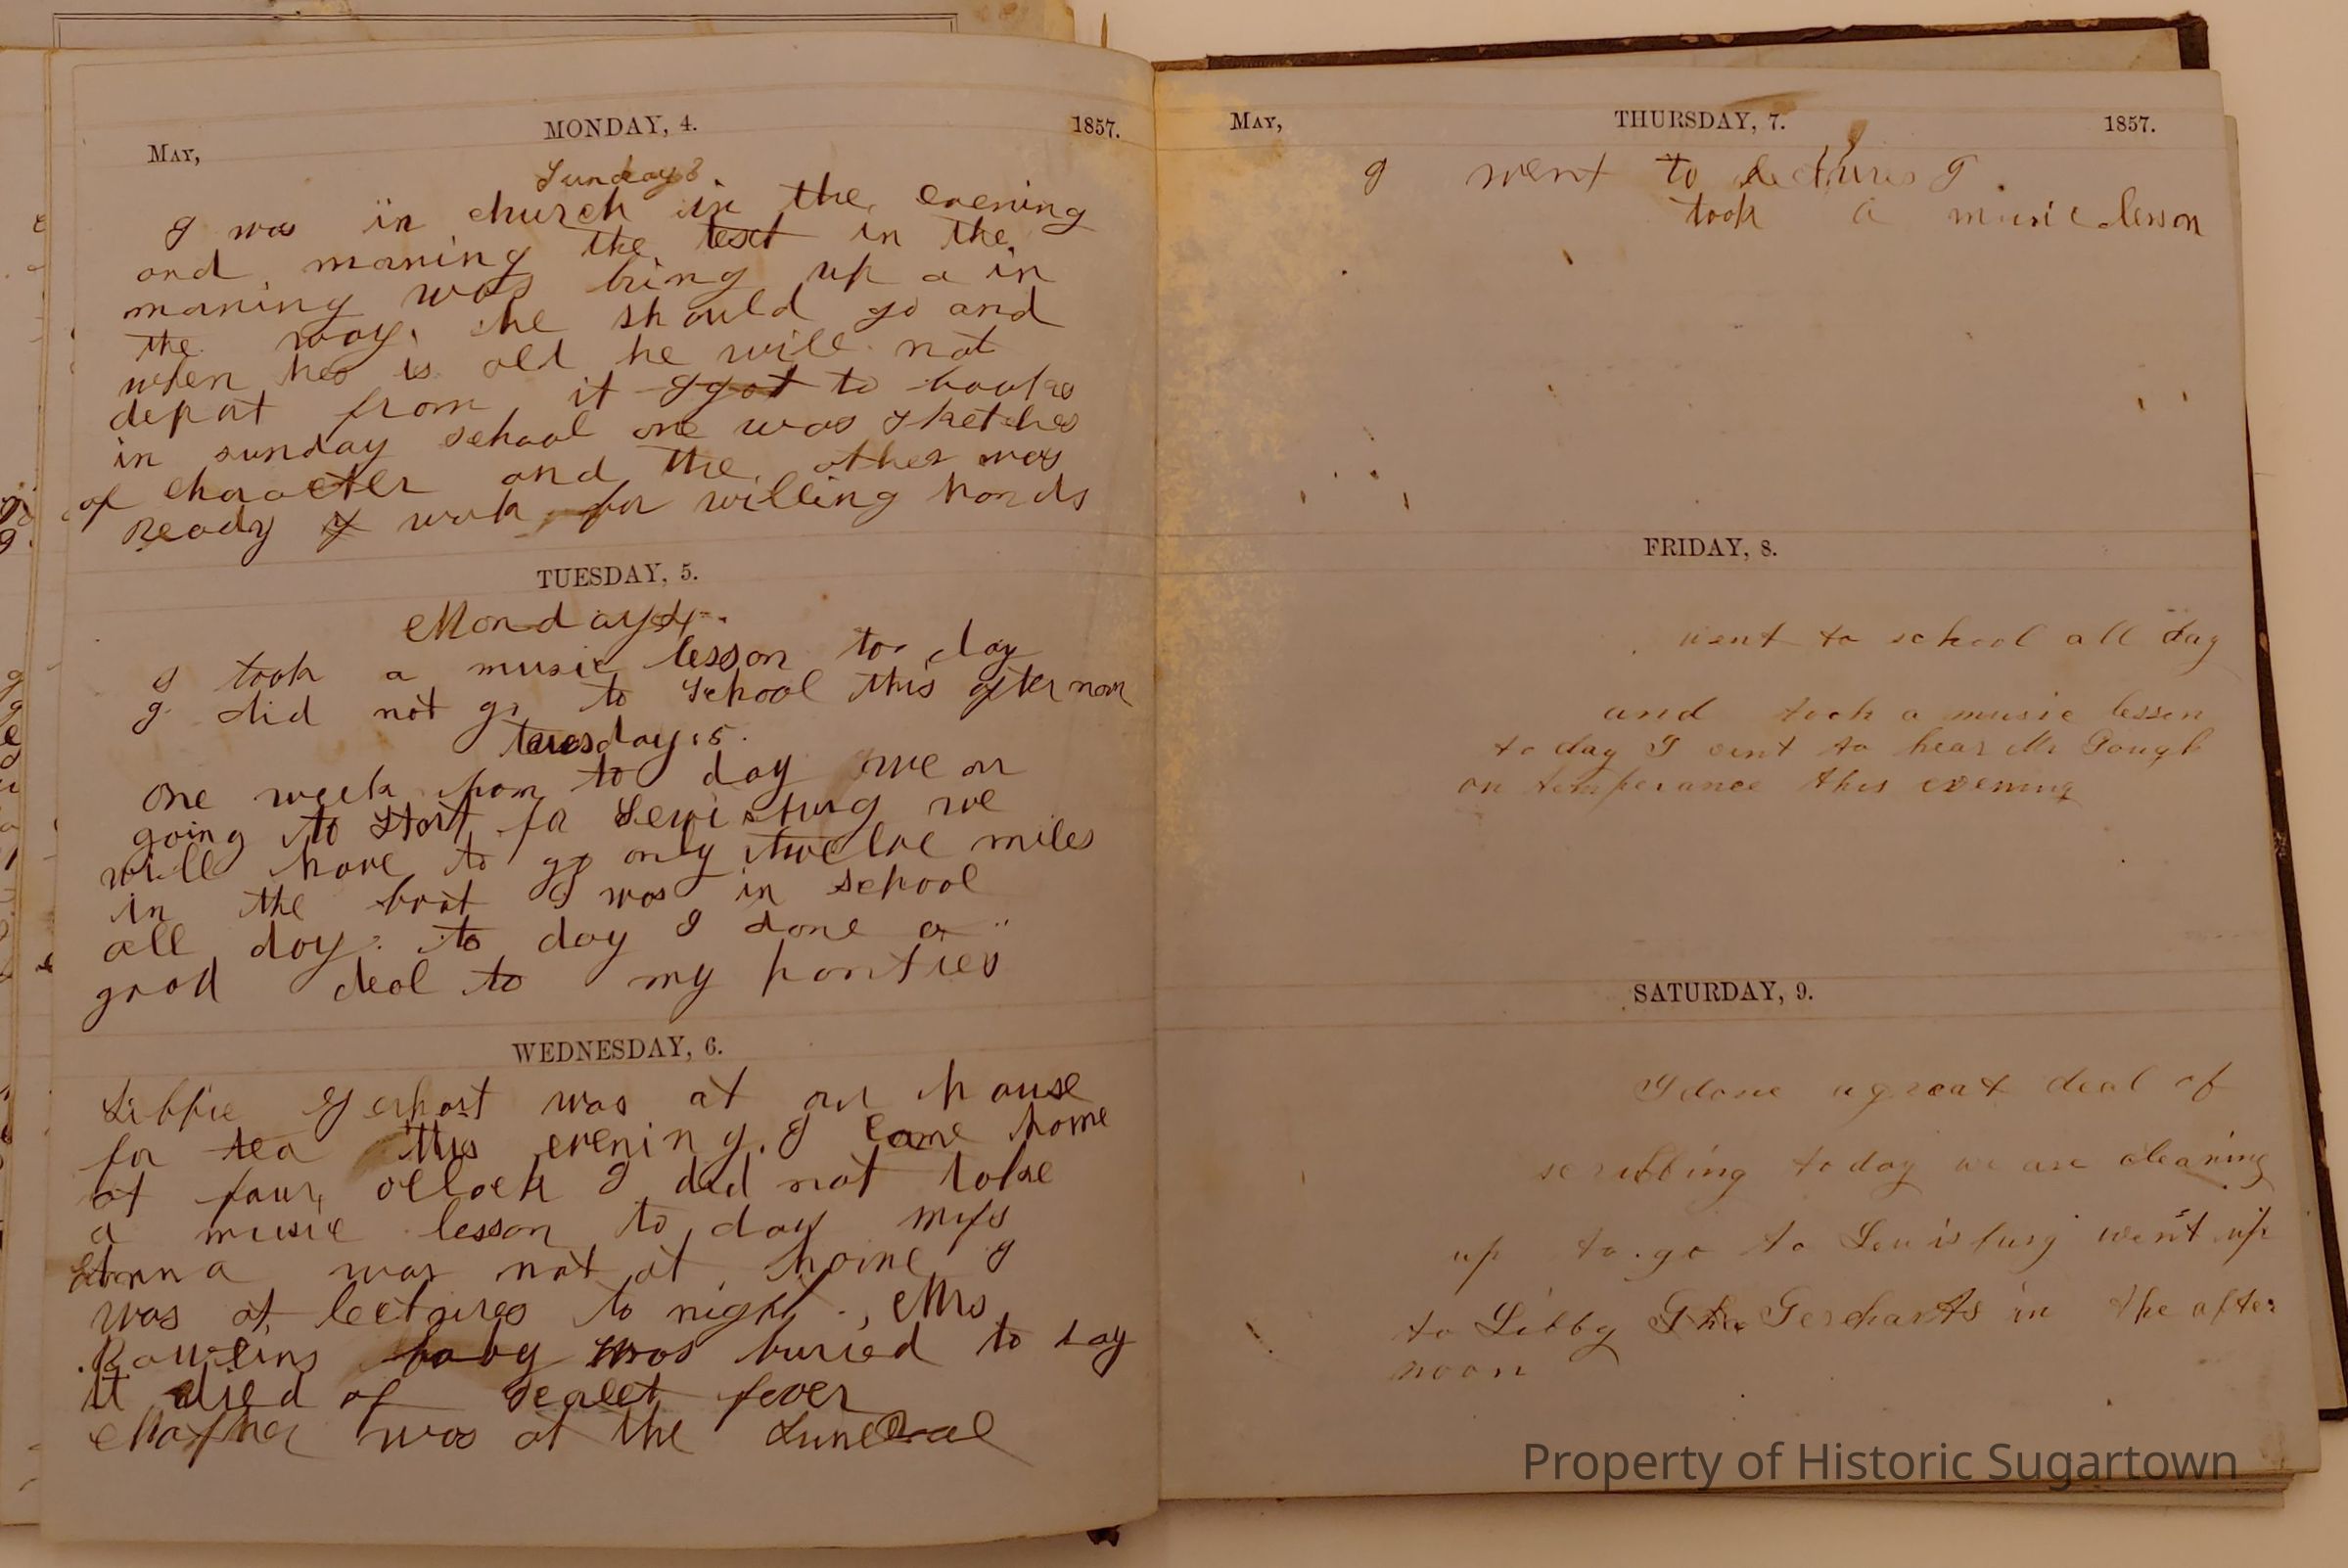 May,
MONDAY, 4.
1857.
Sunday 3
I was in church in the evening
and morning the text in the
morning was bring up a in
the way he should go and
when he is old he will not
depart from it I got to books
in sunday school one was sketches
of character and the other was
Ready work for willing hands
TUESDAY, 5.
Monday 4
I took a music lesson to day
I did not go to school this afternoon
tuesday 5.
One week from to day we are
going to start for Lewisburg we
will have to go only twelve miles
in the boat I was in school
all day to day I done a
good deal to my panties
WEDNESDAY, 6.
Libbie Gerhart was at our house
for tea this evening. I came home
at four oclock I did not take
a music lesson to day Miss
Emma was not at home I
was at lectures to night. Mrs
Rawlins baby was buried to day
it died of scarlet fever
Mother was at the funeral
May,
THURSDAY, 7.
1857.
I went to lectures I
took a music lesson
FRIDAY, 8.
went to school all day
and took a music lesson
to day I went to hear Mr Gough
on temperance this evening
SATURDAY, 9.
I done a great deal of
scrubbing today we are cleaning
up to go to Lewisburg went up
to Libby Gerharts in the after
noon
Property of Historic Sugartown